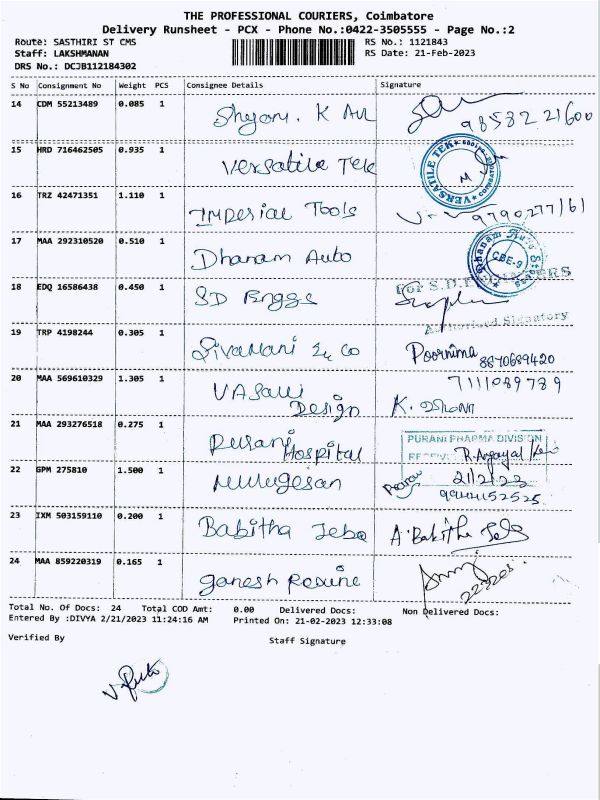 THE PROFESSIONAL COURIERS, Coimbatore
Delivery Runsheet - PCX - Phone No.:0422-3505555 - Page No.:2
Route: SASTHIRI ST CMS RS No.: 1121843
Staff: LAKSHMANAN RS Date: 21-Feb-2023
DRS No.: DCJB112184302
S No Consignment No Weight PCS Consignee Details Signature
14 CDM 55213489 0.085 1 Shyam. K 98532 21600
15 HRD 716462505 0.935 1 Versatile Tek VERSATILE TEK COIMBATORE
16 TRZ 42471351 1.110 1 Imperial Tools 9790277161
17 MAA 292310520 0.510 1 Dharam Auto CBE-9
18 EDQ 16586438 0.450 1 SD For S.D.
Authorised Signatory
19 TRP 4198244 0.305 1 Sivamani & Co Poornima 8870689420
20 MAA 569610329 1.305 1 VASavi Design 7111089789
K.
21 MAA 293276518 0.275 1 Purani Hospital PURANI PHARMA DIVISION
22 GPM 275810 1.500 1 Murugesan 21/2/23
9944152525
23 IXM 503159110 0.200 1 Babitha Jeba A. Babitha Jeba
24 MAA 859220319 0.165 1 Ganesh
Total No. Of Docs: 24 Total COD Amt: 0.00 Delivered Docs: Non Delivered Docs:
Entered By :DIVYA 2/21/2023 11:24:16 AM Printed On: 21-02-2023 12:33:08
Verified By Staff Signature